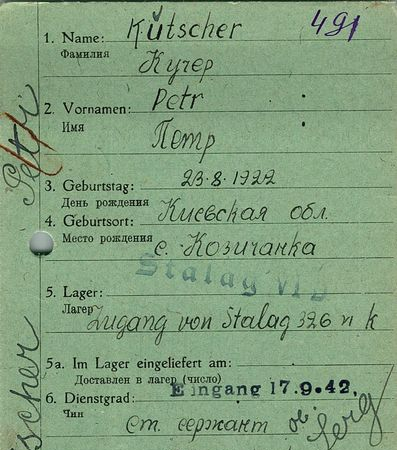 491
1. Name: Kütscher
Фамилия Кучер
2. Vornamen: Petr
Имя Петр
3. Geburtstag: 23.8.1922
День рождения
4. Geburtsort: Киевская обл.
Место рождения с. Козичанка
Stalag VI D
5. Lager:
Лагерь Zugang von Stalag 326 VI K
5a. Im Lager eingeliefert am:
Доставлен в лагерь (число)
Eingang 17.9.42.
6. Dienstgrad:
Чин Ст. сержант
Petri
scher